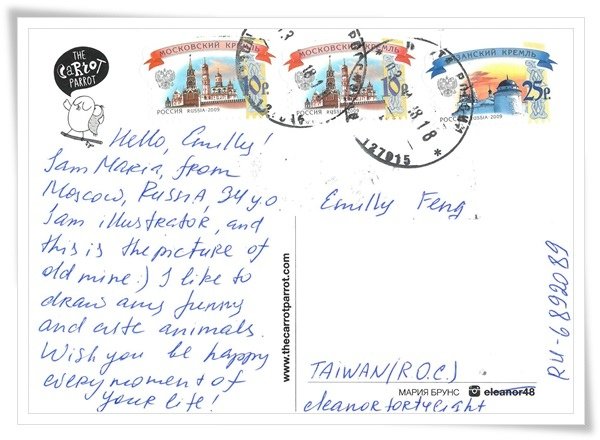 THE
CaRrOT
PARROT
МОСКОВСКИЙ КРЕМЛЬ
10р.
РОССИЯ RUSSIA 2009
МОСКОВСКИЙ КРЕМЛЬ
10р.
РОССИЯ RUSSIA 2009
КАЗАНСКИЙ КРЕМЛЬ
25р.
РОССИЯ RUSSIA 2009
127015 *
Hello, Emilly!
I am Maria, from
Moscow, Russia, 34 yo
I am illustrator, and
this is the picture of
old mine:) I like to
draw any funny
and cute animals.
Wish you be happy
every moment of
your life!
www.thecarrotparrot.com
Emilly Feng
TAIWAN (R.O.C.)
eleanorfortylight
МАРИЯ БРУНС eleanor48
RU-6892089